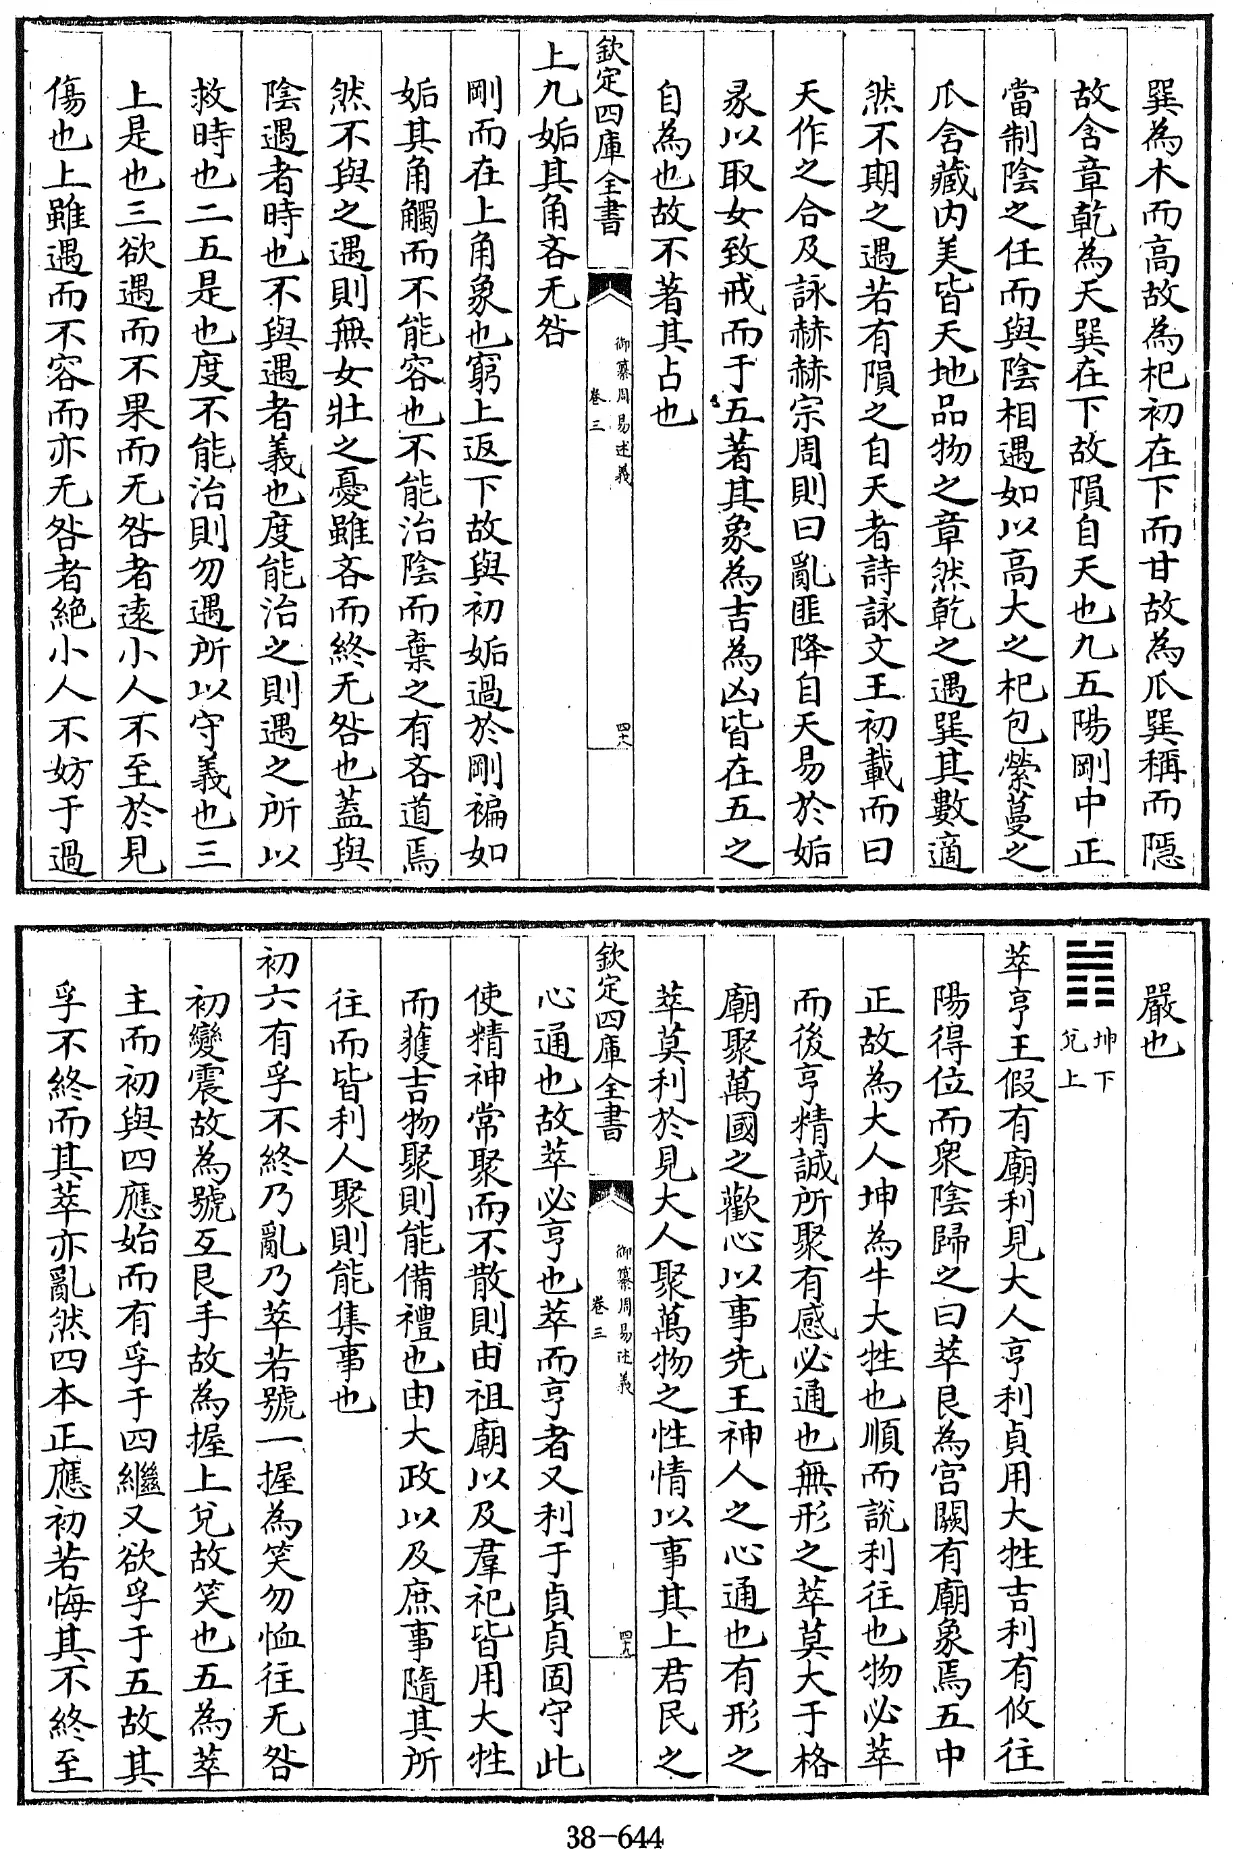 巽為木而高故為杞初在下而甘故為瓜巽稱而隱
故含章乾為天巽在下故隕自天也九五陽剛中正
當制陰之任而與陰相遇如以高大之杞包縈蔓之
瓜含藏内美皆天地品物之章然乾之遇巽其數適
然不期之遇若有隕之自天者詩詠文王初載而曰
天作之合及詠赫赫宗周則曰亂匪降自天易於姤
彖以取女致戒而于五著其象為吉為凶皆在五之
自為也故不著其占也
欽定四庫全書
御纂周易述義
卷三
四八
上九姤其角吝无咎
剛而在上角象也窮上返下故與初姤過於剛褊如
姤其角觸而不能容也不能治陰而棄之有吝道焉
然不與之遇則無女壯之憂雖吝而終无咎也蓋與
陰遇者時也不與遇者義也度能治之則遇之所以
救時也二五是也度不能治則勿遇所以守義也三
上是也三欲遇而不果而无咎者遠小人不至於見
傷也上雖遇而不容而亦无咎者絶小人不妨于過
嚴也
坤下
兌上
萃亨王假有廟利見大人亨利貞用大牲吉利有攸往
陽得位而衆陰歸之曰萃艮為宫闕有廟象焉五中
正故為大人坤為牛大牲也順而說利往也物必萃
而後亨精誠所聚有感必通也無形之萃莫大于格
廟聚萬國之歡心以事先王神人之心通也有形之
萃莫利於見大人聚萬物之性情以事其上君民之
欽定四庫全書
御纂周易述義
卷三
四九
心通也故萃必亨也萃而亨者又利于貞貞固守此
使精神常聚而不散則由祖廟以及羣祀皆用大牲
而獲吉物聚則能備禮也由大政以及庶事隨其所
往而皆利人聚則能集事也
初六有孚不終乃亂乃萃若號一握為笑勿恤往无咎
初變震故為號互艮手故為握上兌故笑也五為萃
主而初與四應始而有孚于四繼又欲孚于五故其
孚不終而其萃亦亂然四本正應初若悔其不終至
38-644